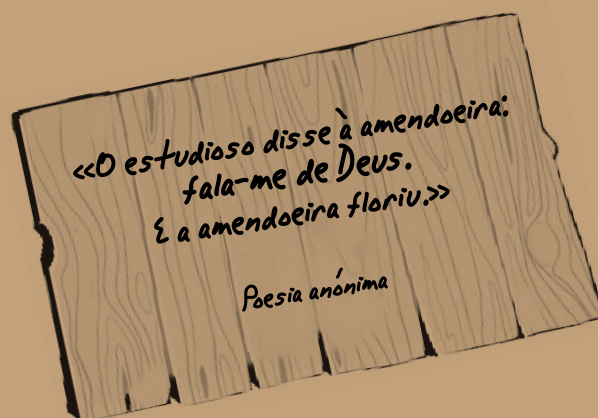 «O estudioso disse à amendoeira:
fala-me de Deus.
E a amendoeira floriu.»
Poesia anónima